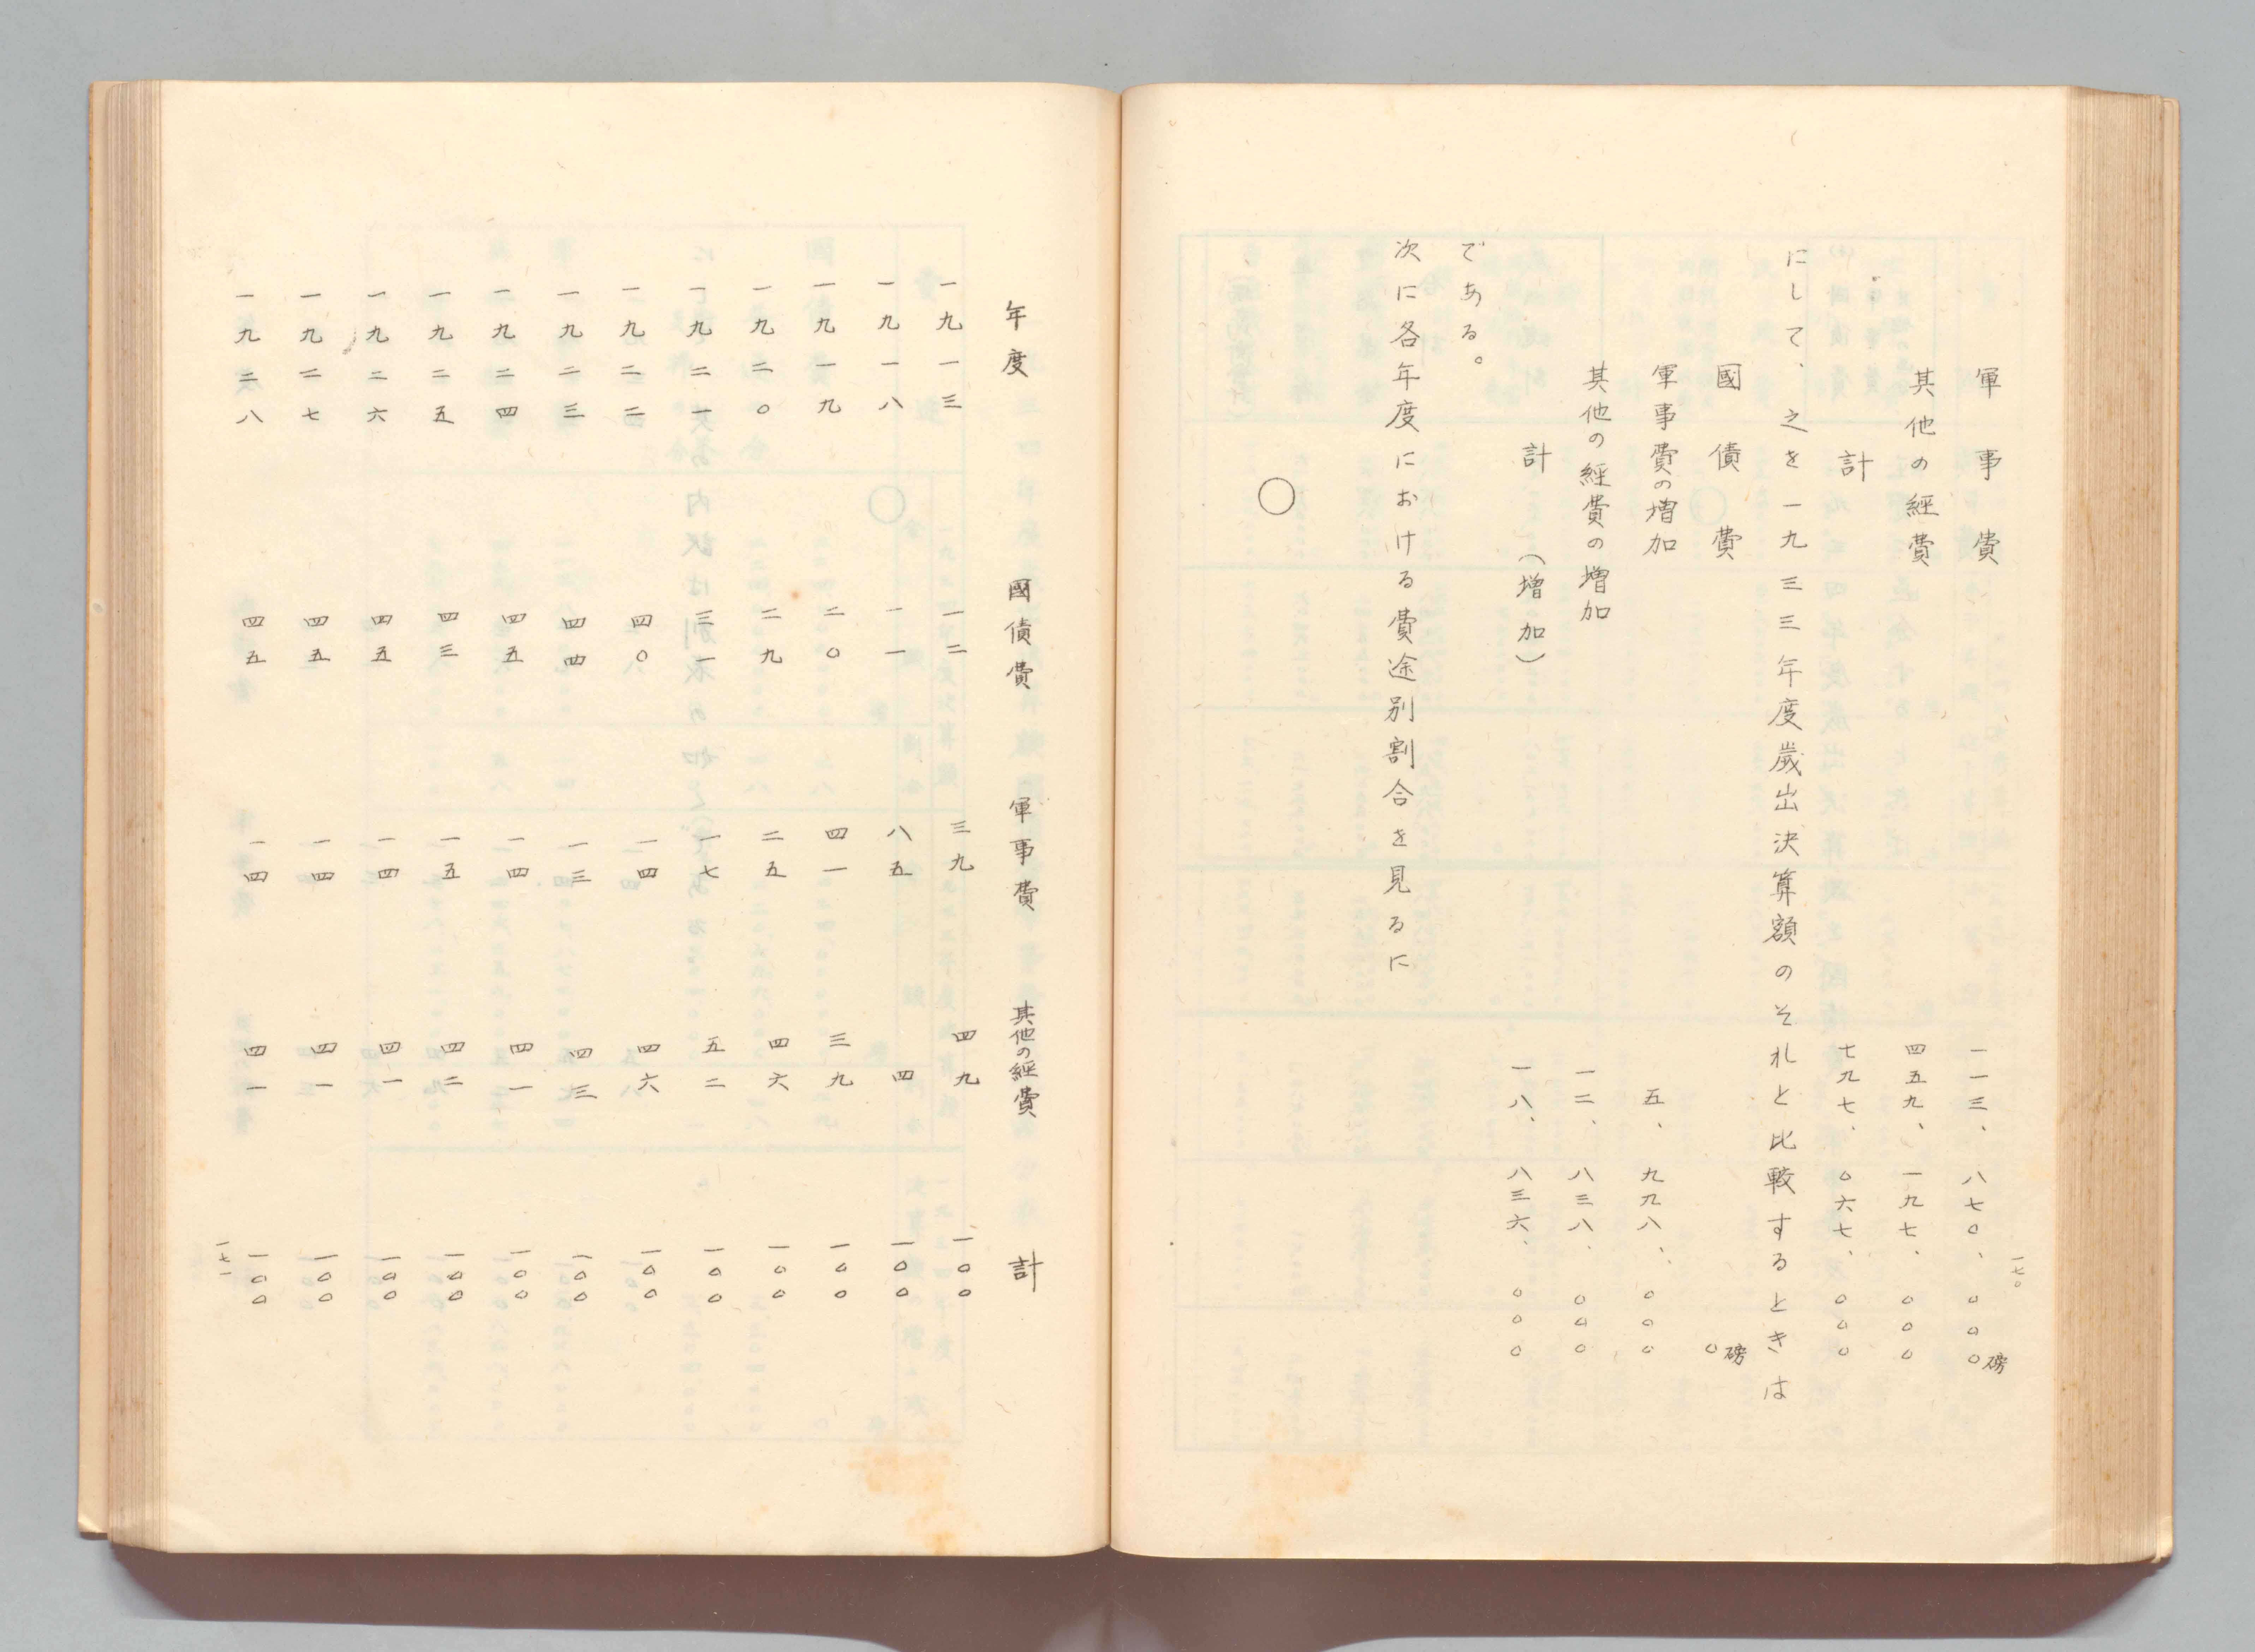 軍事費 一一三、八七〇、〇〇〇磅
其他の經費 四五九、一九七、〇〇〇
計 七九七、〇六七、〇〇〇
にして、之を一九三三年度歲出決算額のそれと比較するときは
國債費 〇磅
軍事費の増加 五、九九八、〇〇〇
其他の經費の増加 一二、八三八、〇〇〇
計（増加） 一八、八三六、〇〇〇
である。
次に各年度における費途別割合を見るに
〇
一七〇
年度 國債費 軍事費 其他の經費 計
一九一三 一二 三九 四九 一〇〇
一九一八 一一 八五 四 一〇〇
一九一九 二〇 四一 三九 一〇〇
一九二〇 二九 二五 四六 一〇〇
一九二一 三一 一七 五二 一〇〇
一九二二 四〇 一四 四六 一〇〇
一九二三 四四 一三 四三 一〇〇
一九二四 四五 一四 四一 一〇〇
一九二五 四三 一五 四二 一〇〇
一九二六 四五 一四 四一 一〇〇
一九二七 四五 一四 四一 一〇〇
一九二八 四五 一四 四一 一〇〇
一七一